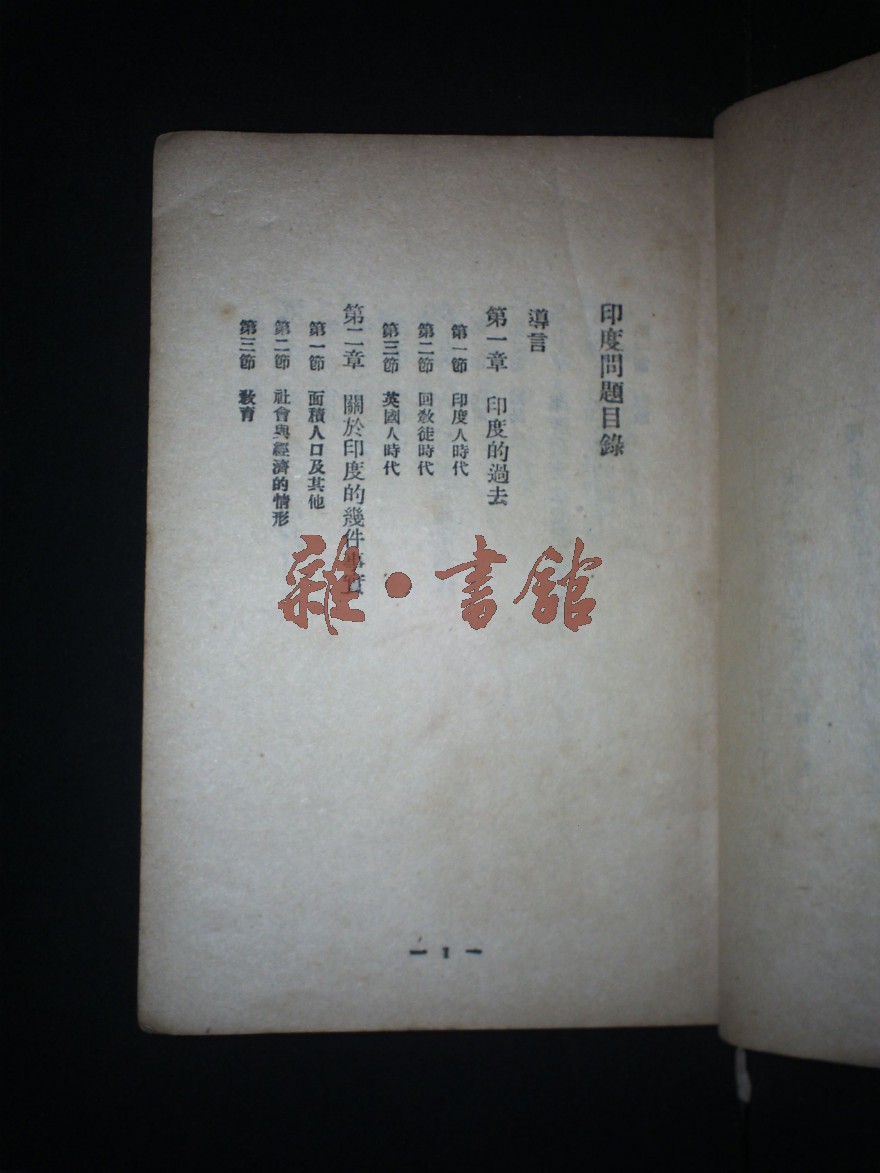 印度問題目錄
導言
第一章 印度的過去
第一節 印度人時代
第二節 回敎徒時代
第三節 英國人時代
第二章 關於印度的幾件事實
第一節 面積人口及其他
第二節 社會與經濟的情形
第三節 敎育
— 1 —
雜·書館